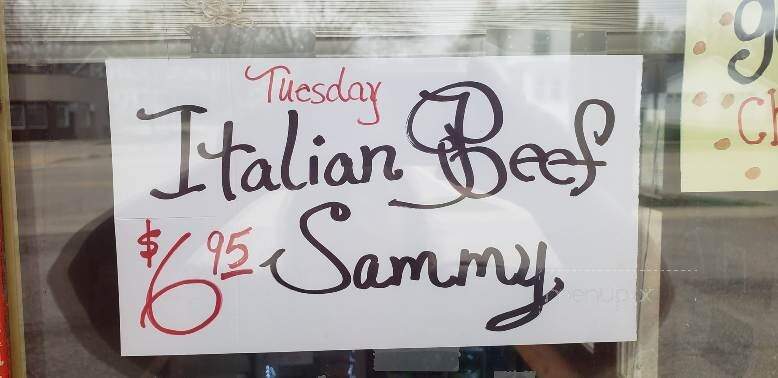 Tuesday
Italian Beef
$6.95 Sammy
menupix